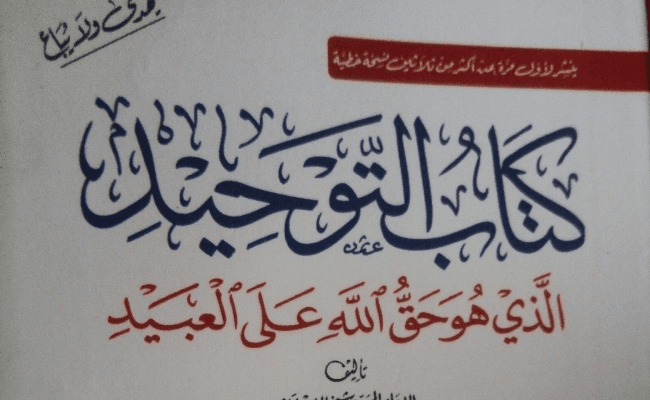 يهدى ولا يباع
ينشر لأول مرة عن أكثر من ثلاثين نسخة خطية
كِتَابُ التَّوْحِيدِ
الَّذِيْ هُوَ حَقُّ ٱللَّهِ عَلَى ٱلْعَبِيْدِ
تأليف